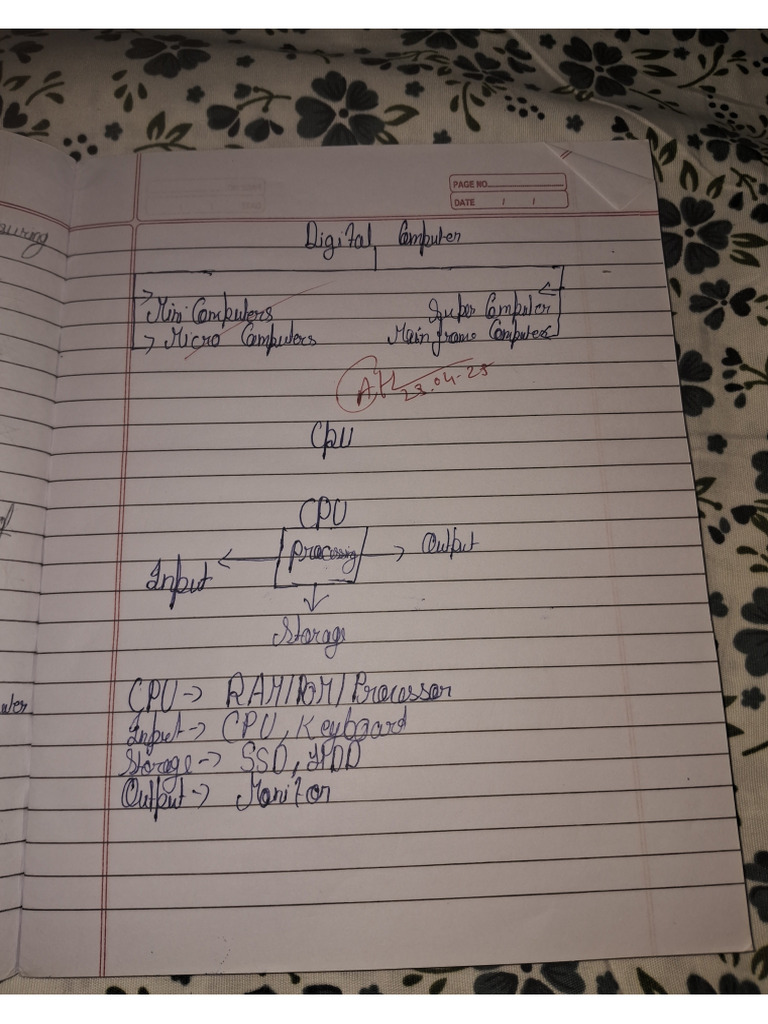 PAGE NO.
DATE / /
Digital Computer
Mini Computers Super Computer
Micro Computers Main frame Computers
23.04.25
CPU
CPU
Processing
Output
Input
Storage
CPU → RAM/ROM/Processor
Input → CPU, Keyboard
Storage → SSD, HDD
Output → Monitor